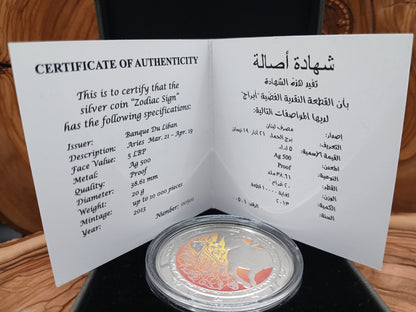 CERTIFICATE OF AUTHENTICITY
This is to certify that the
silver coin "Zodiac Sign"
has the following specifications:
Issuer: Banque Du Liban
Description: Aries Mar. 21 - Apr. 19
Face Value: 5 LBP
Metal: Ag 500
Quality: Proof
Diameter: 38.61 mm
Weight: 20 g
Mintage: up to 10 000 pieces
Year: 2013
Number:
شهادة أصالة
تفيد هذه الشهادة
بأن القطعة النقدية الفضية "أبراج"
لديها المواصفات التالية:
إصدار: مصرف لبنان
التعريف: برج الحمل ٢١ آذار - ١٩ نيسان
القيمة الإسمية: ٥ ل.ل.
المعدن: Ag 500
النوعية: Proof
القطر: ٣٨،٦١ مم
الوزن: ٢٠ غرام
الكمية: لغاية ١٠٠٠٠ قطعة
السنة: ٢٠١٣